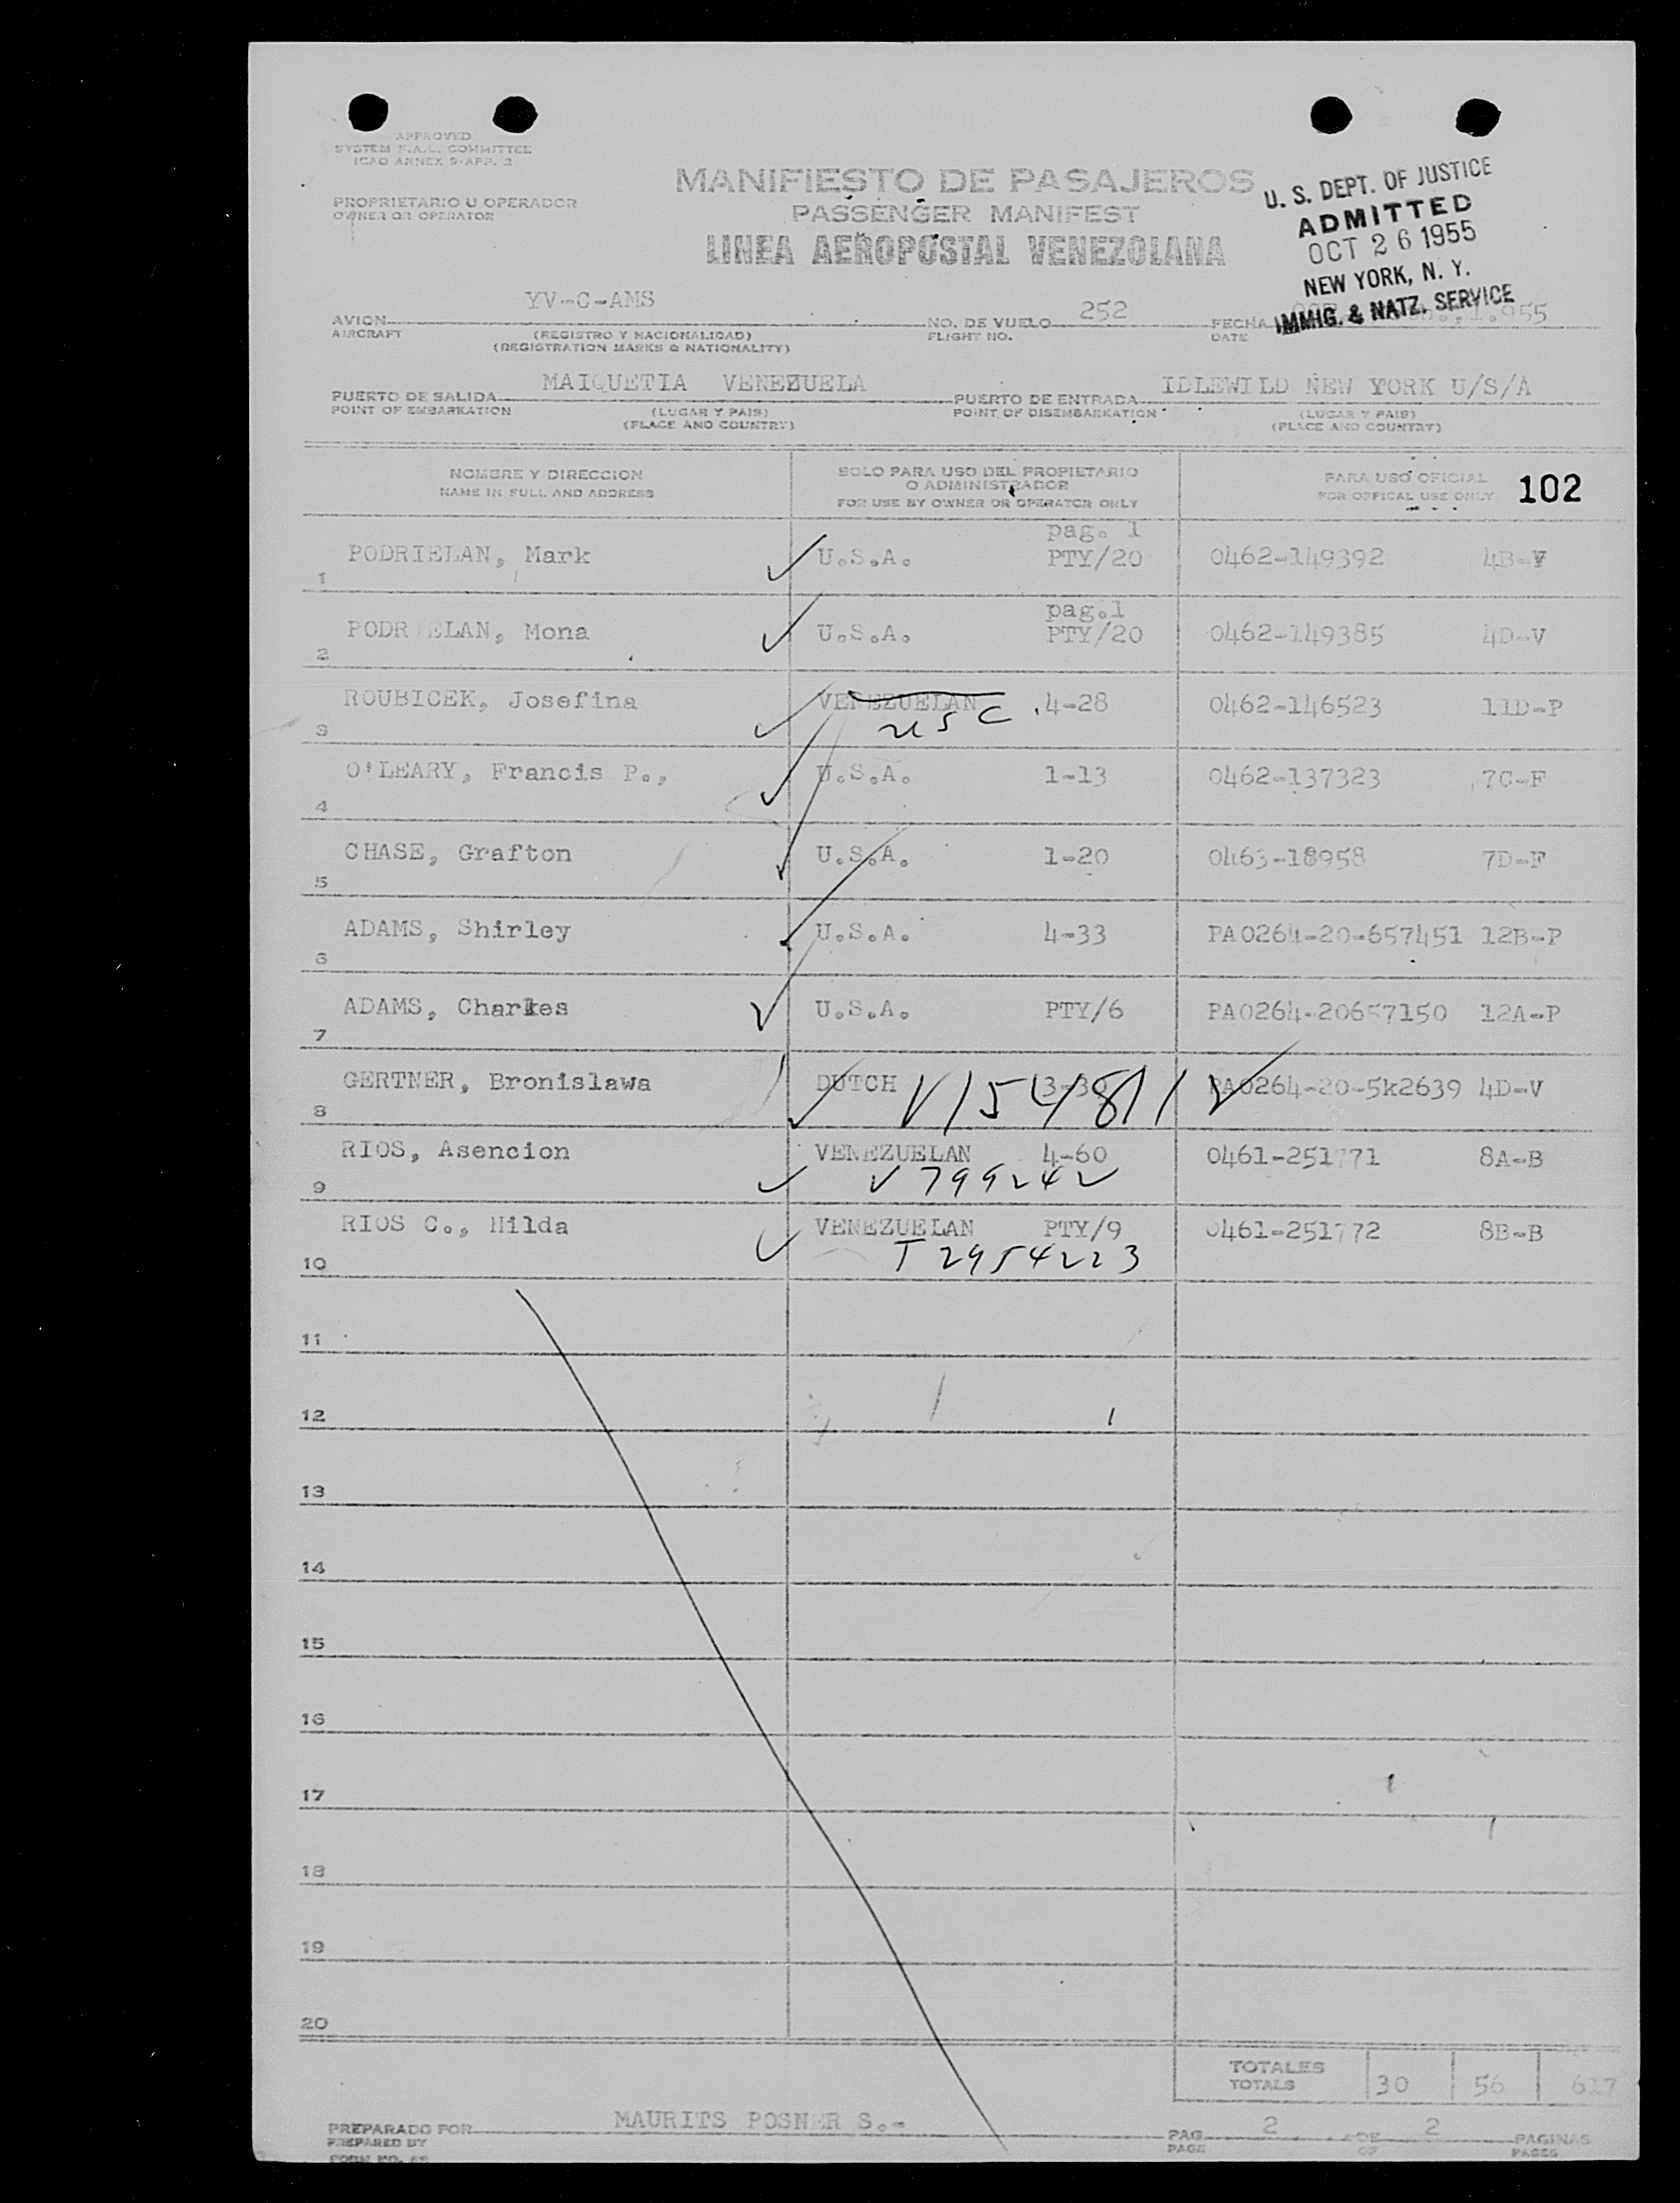 APPROVED
SYSTEM F.A.L. COMMITTEE
ICAO ANNEX 9-APP. 2
PROPRIETARIO U OPERADOR
OWNER OR OPERATOR
MANIFIESTO DE PASAJEROS
PASSENGER MANIFEST
LINEA AEROPOSTAL VENEZOLANA
U. S. DEPT. OF JUSTICE
ADMITTED
OCT 26 1955
NEW YORK, N. Y.
IMMIG. & NATZ. SERVICE
AVION YV-C-AMS NO. DE VUELO 252 FECHA 1.955
AIRCRAFT (REGISTRO Y NACIONALIDAD) FLIGHT NO. DATE
(REGISTRATION MARKS & NATIONALITY)
PUERTO DE SALIDA MAIQUETIA VENEZUELA PUERTO DE ENTRADA IDLEWILD NEW YORK U/S/A
POINT OF EMBARKATION (LUGAR Y PAIS) POINT OF DISEMBARKATION (LUGAR Y PAIS)
(PLACE AND COUNTRY) (PLACE AND COUNTRY)
NOMBRE Y DIRECCION SOLO PARA USO DEL PROPIETARIO PARA USO OFICIAL 102
NAME IN FULL AND ADDRESS O ADMINISTRADOR FOR OFFICAL USE ONLY
FOR USE BY OWNER OR OPERATOR ONLY
pag. 1
PODRIELAN, Mark U.S.A. PTY/20 0462-149392 4B-V
1
pag.1
PODRIELAN, Mona U.S.A. PTY/20 0462-149385 4D-V
2
ROUBICEK, Josefina VENEZUELAN 4-28 0462-146523 11D-P
USC
3
O'LEARY, Francis P., U.S.A. 1-13 0462-137323 7C-F
4
CHASE, Grafton U.S.A. 1-20 0463-18958 7D-F
5
ADAMS, Shirley U.S.A. 4-33 PA0264-20-657451 12B-P
6
ADAMS, Charles U.S.A. PTY/6 PA0264-20657150 12A-P
7
GERTNER, Bronislawa DUTCH 3-30 PA0264-20-5k2639 4D-V
8
RIOS, Asencion VENEZUELAN 4-60 0461-251771 8A-B
V799242
9
RIOS C., Hilda VENEZUELAN PTY/9 0461-251772 8B-B
T2954223
10
11
12
13
14
15
16
17
18
19
20
TOTALES 30 56 617
TOTALS
PREPARADO POR MAURITS POSNER S.- PAG 2 DE 2 PAGINAS
PREPARED BY PAGE OF PAGES